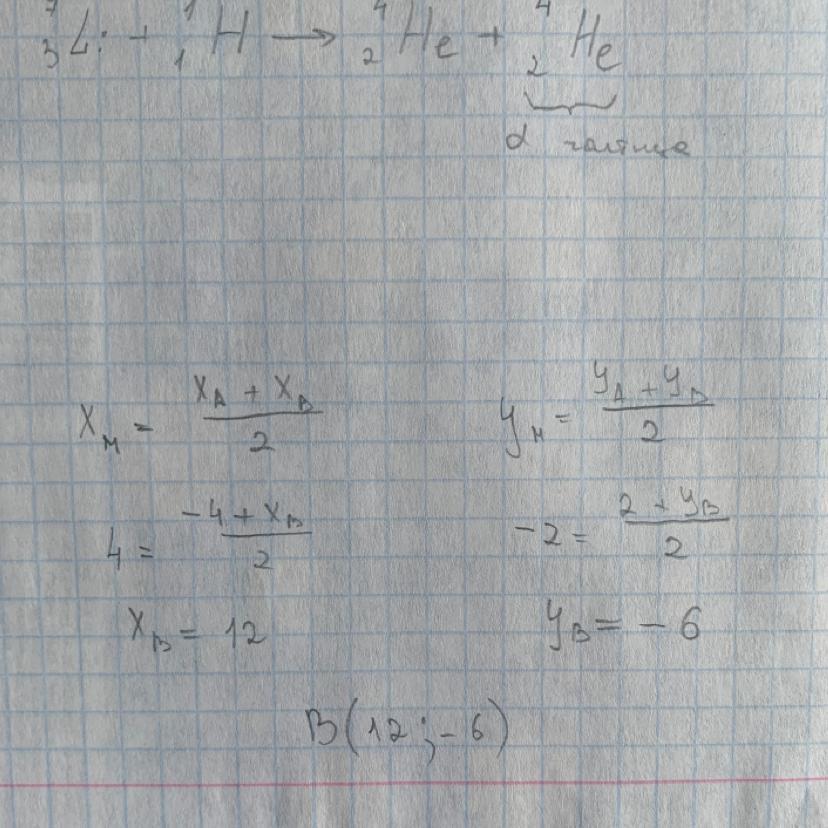 ⁷₃Li + ¹₁H → ⁴₂He + ⁴₂He
α частица
x_M = (x_A + x_B)/2
y_M = (y_A + y_B)/2
4 = (-4 + x_B)/2
-2 = (2 + y_B)/2
x_B = 12
y_B = -6
B(12; -6)